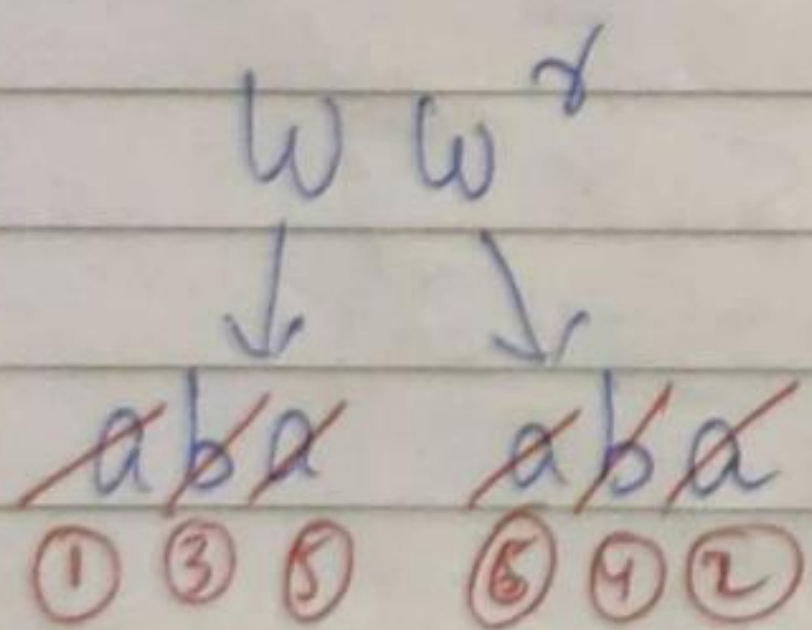 W W^r
a b a a b a
① ③ ⑤ ⑥ ④ ②